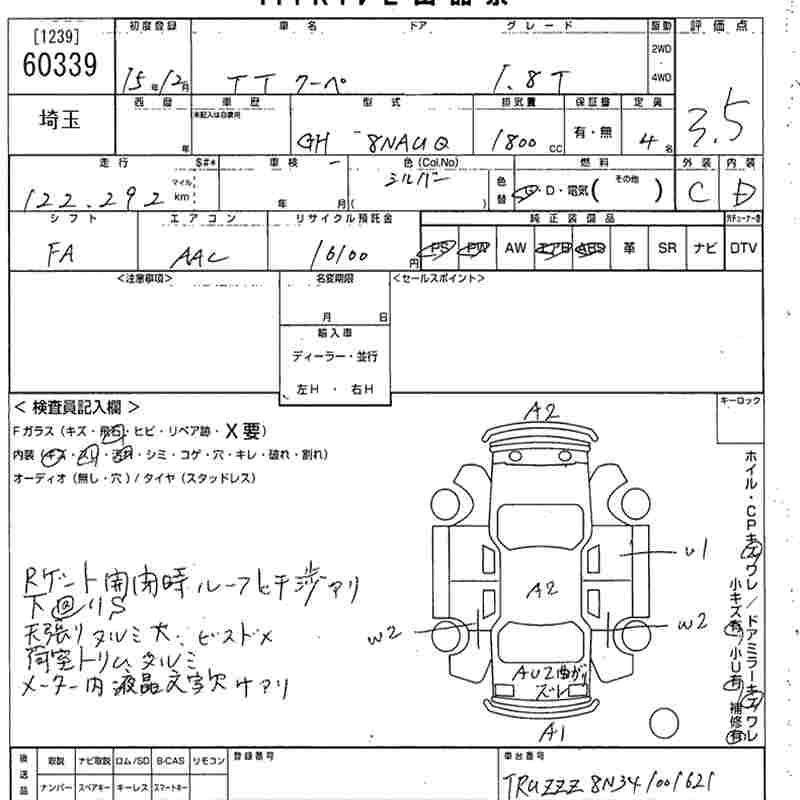 [1239]
60339
埼玉
初度登録 車名 ドア グレード 駆動 評価点
15年12月 TT クーペ 1.8T 2WD・4WD 3.5
西暦 車歴 型式 排気量 保証書 定員
年 未記入は自家用 GH-8NAUQ 1800cc 有・無 4名
走行 $#* 車検 色(Col.No) 色替 燃料 外装 内装
122.292 マイル km 年 月 シルバー ( ) G・D・電気(その他) C D
シフト エアコン リサイクル預託金 純正装備品
FA AAC 16100円 PS PW AW エアB ABS 革 SR ナビ DTV
<注意事項> 名変期限 <セールスポイント>
月 日
輸入車
ディーラー・並行
左H ・ 右H
< 検査員記入欄 > キーロック
Fガラス(キズ・飛石・ヒビ・リペア跡・X要)
内装(キズ・スリ・汚れ・シミ・コゲ・穴・キレ・破れ・割れ)
オーディオ(無し・穴)/タイヤ(スタッドレス)
Rゲート開閉時ルーフヒ干渉アリ
下回りS
天張りタルミ大・ビスドメ
荷室トリムタルミ
メーター内液晶文字欠ケアリ
A2
U1
A2
W2
W2
AU2曲がり
ズレ
A1
ホイル・CPキズワレ/ドアミラーキズワレ
小キズ有 小U有 補修有
後送品 取説 ナビ取説 ロム/SD B-CAS リモコン 登録番号 車台番号
ナンバー スペアキー キーレス スマートキー TRUZZZ8N341001621